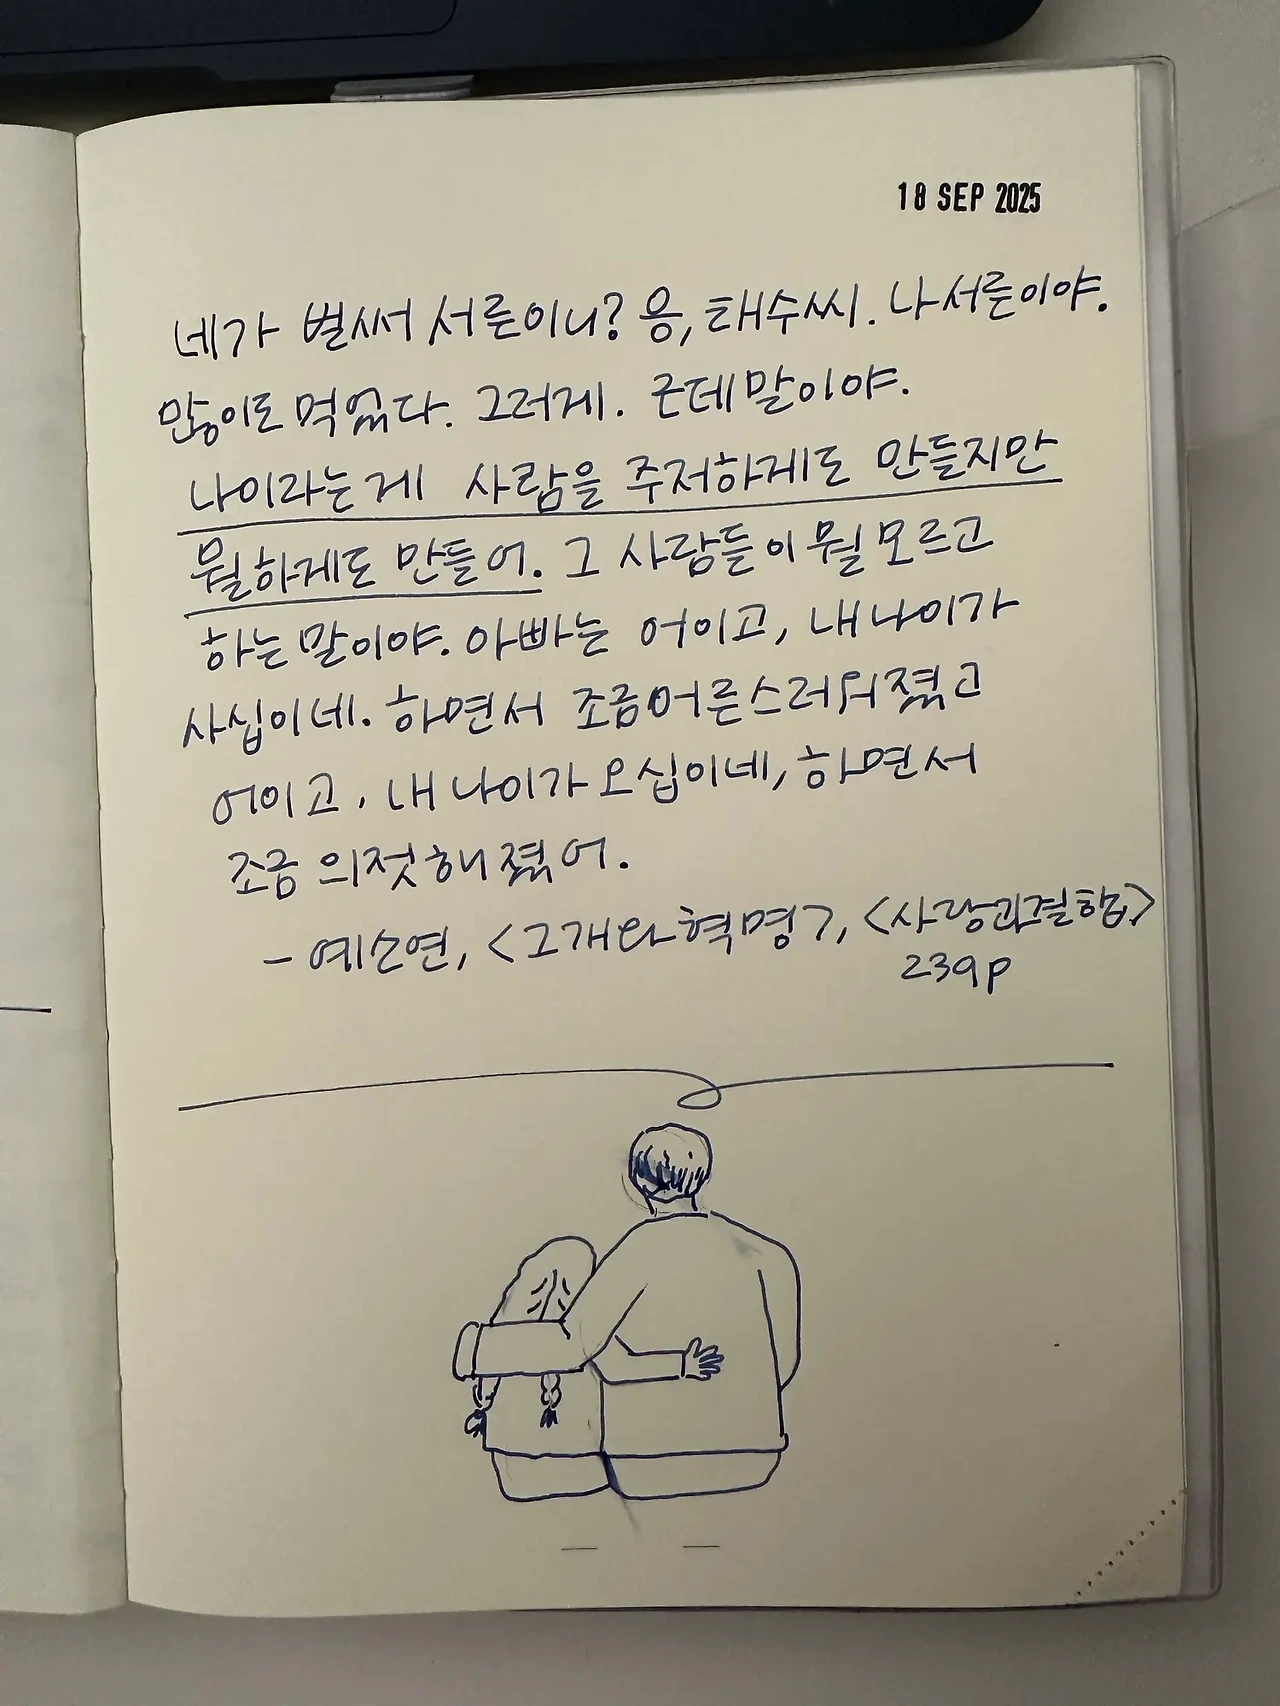 18 SEP 2025
네가 벌써 서른이니? 응, 태수씨. 나 서른이야.
많이도 먹었다. 그러게. 근데 말이야.
나이라는게 사람을 주저하게도 만들지만
뭘하게도 만들어. 그 사람들이 뭘 모르고
하는 말이야. 아빠는 어이고, 내 나이가
사십이네. 하면서 조금 어른스러워졌고
어이고, 내 나이가 오십이네, 하면서
조금 의젓해졌어.
- 예소연, <그 개와 혁명>, <사랑과 결함>
239p